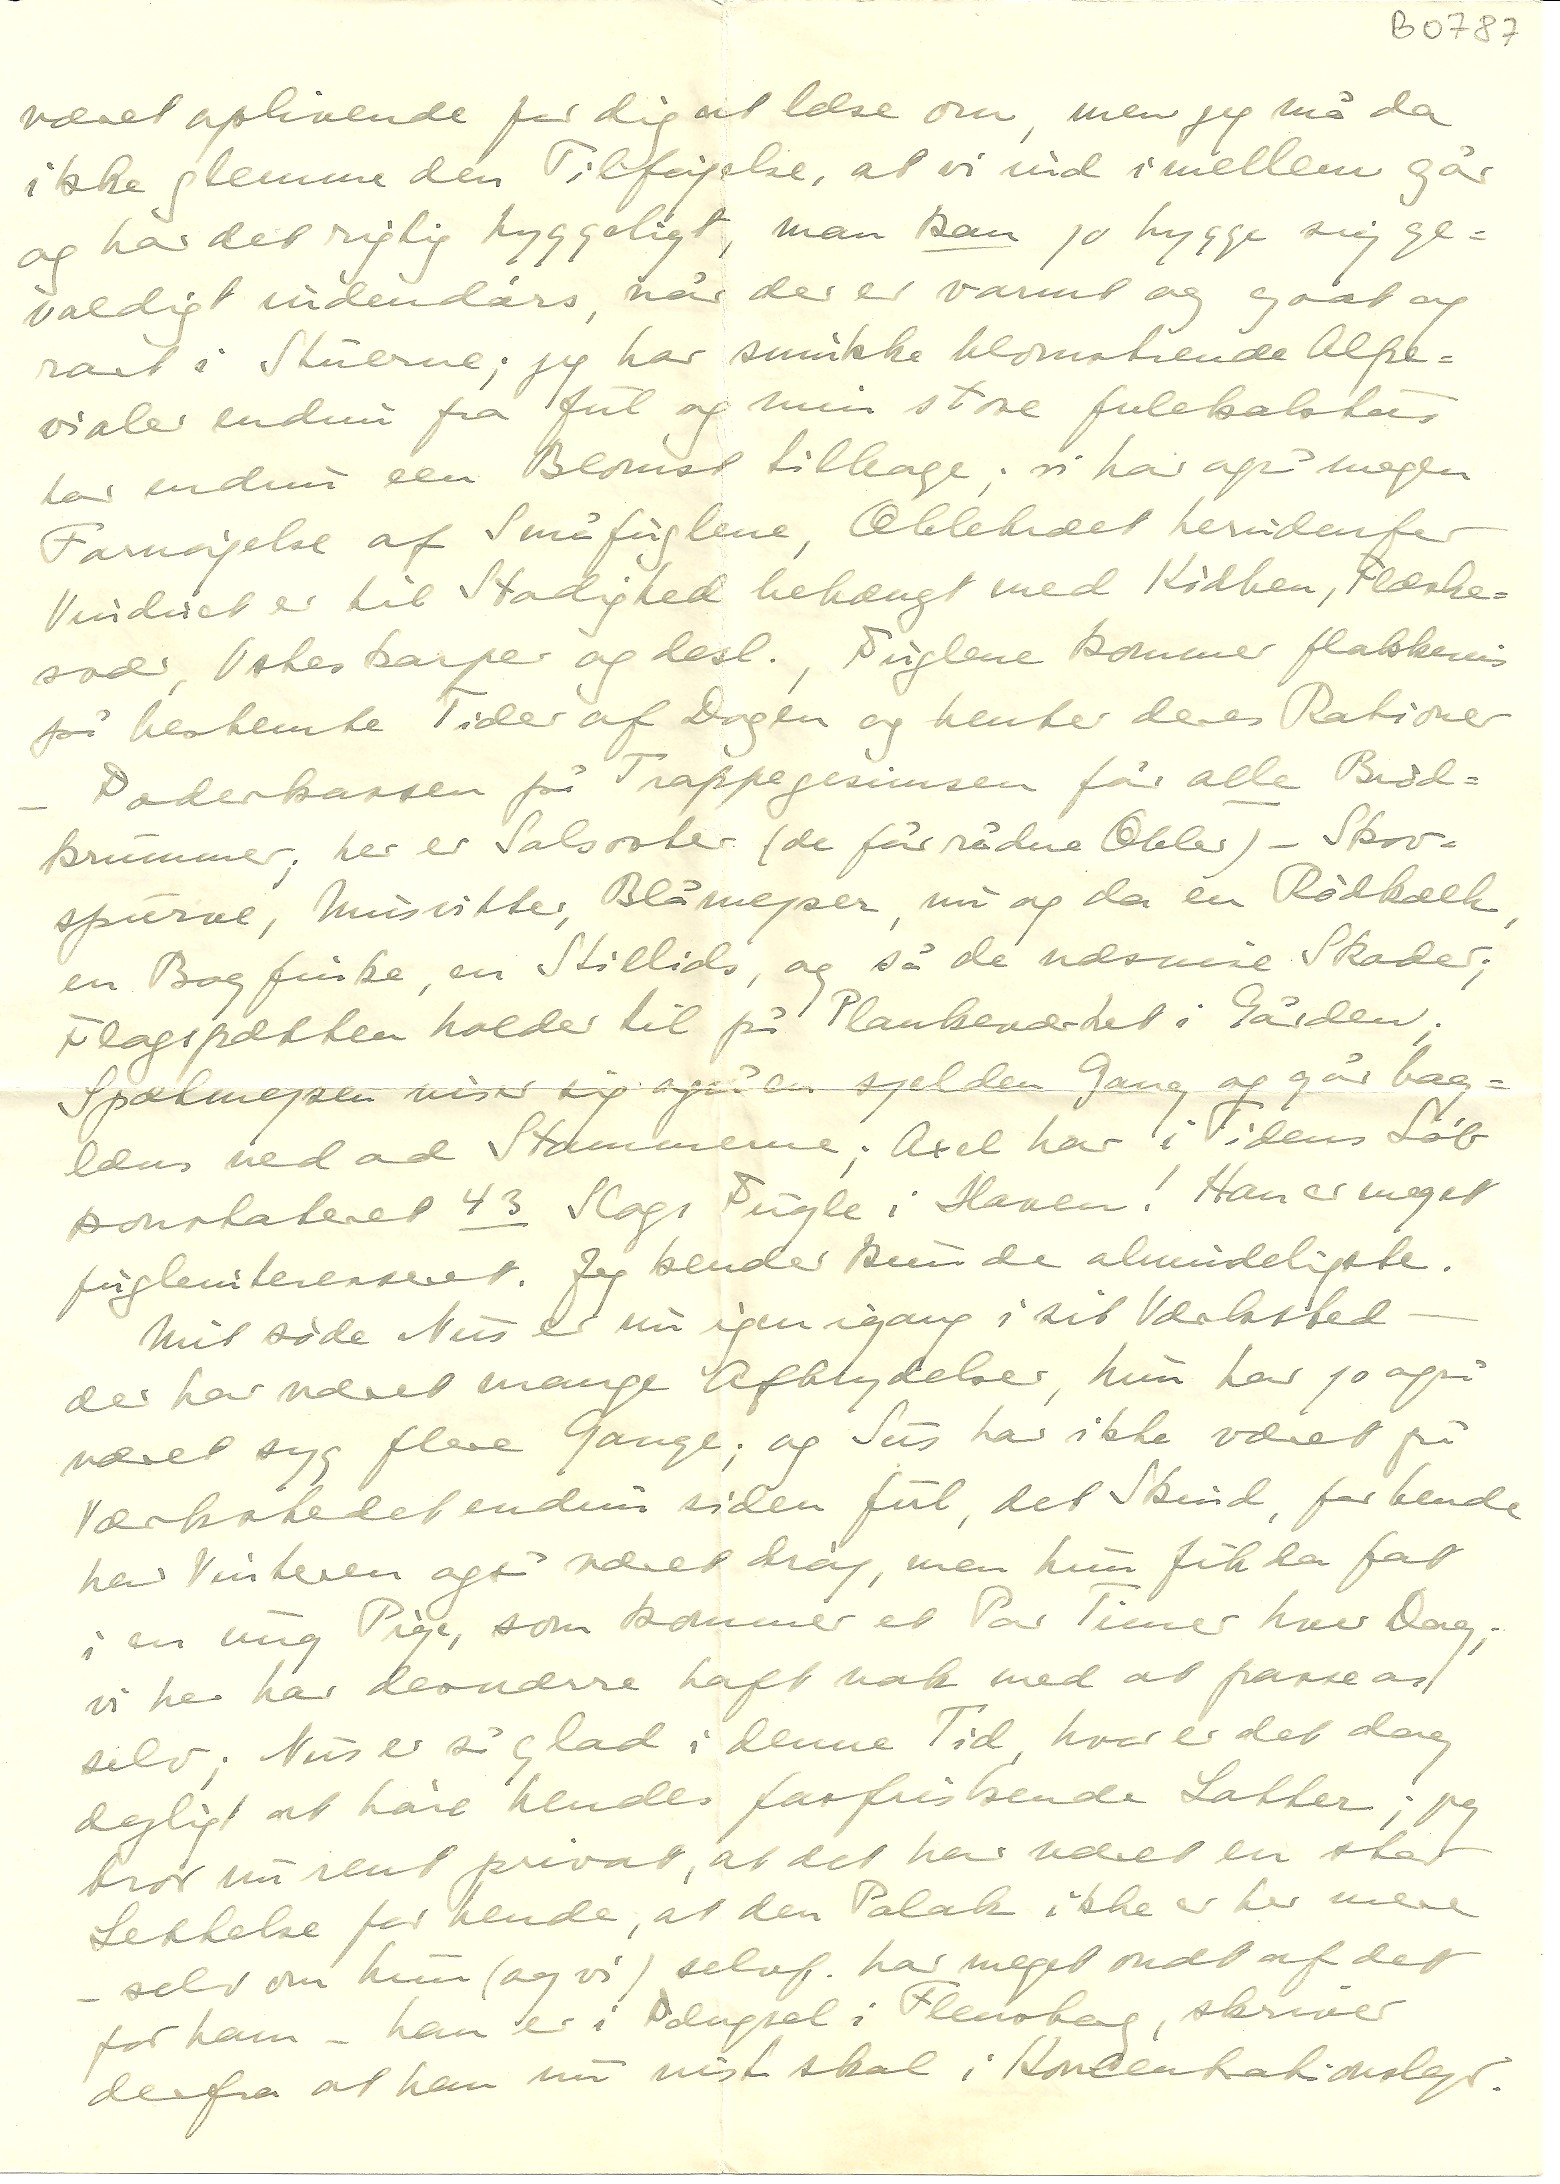 B0787
været oplivende for dig at læse om, men jeg må da
ikke glemme den Tilføjelse, at vi ind imellem går
og har det rigtig hyggeligt, man kan jo hygge sig ge=
valdigt indendørs, når der er varmt og godt og
rart i Stuerne; jeg har smukke blomstrende Alpe=
violer endnu fra Jul og min store Julekaktus
har endnu een Blomst tilbage; vi har også megen
Fornøjelse af Småfuglene, Æbletræet herudenfor
Vinduet er til Stadighed behængt med Kødben, Flæske=
svær, Osteskorper og desl., Fuglene kommer flokkevis
på bestemte Tider af Dagen og henter deres Rationer
– Foderkassen på Trappegesimsen får alle Brød=
krummer; her er Solsorter (de får rådne Æbler) – Skov=
spurve, Musvitter, Blåmejser, nu og da en Rødkælk,
en Bogfinke, en Stillids, og så de nåsvise Skader;
Flagspætten holder til på Plankeværket i Gården;
Spætmejsen viser sig også en sjelden Gang og går bag=
læns ned ad Stammerne; Axel har i Tidens Løb
konstateret 43 Slags Fugle i Haven! Han er meget
fugleinteresseret. Jeg kender kun de almindeligste.
Mit søde Nus er nu igen igang i sit Værksted –
der har været mange Afbrydelser, hun har jo også
været syg flere Gange; og Sus har ikke været på
Værkstedet endnu siden Jul, det Skind, for hende
har Vinteren også været drøj, men hun fik da fat
i en ung Pige, som kommer et Par Timer hver Dag;
vi her har desværre haft nok med at passe os
selv; Nus er så glad i denne Tid, hvor er det dog
dejligt at høre hendes forfriskende Latter; jeg
tror nu rent privat, at det har været en stor
Lettelse for hende, at den Polak ikke er her mere
– selv om hun (og vi) selvf. har meget ondt af det
for ham – han er i Fængsel i Flensborg, skriver
derfra at han nu vist skal i Koncentrationslejr.